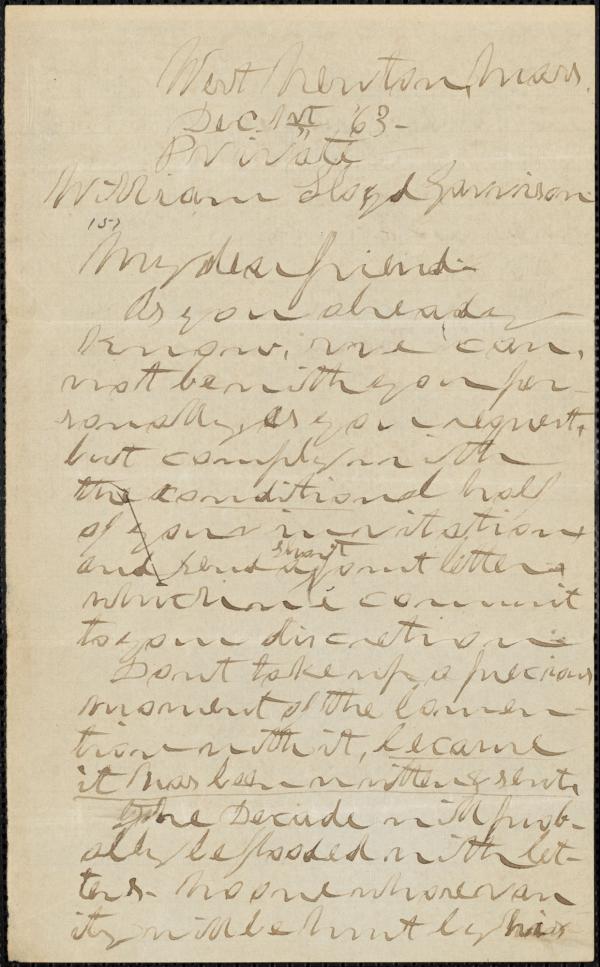 West Newton, Mass.
Dec. 1st '63-
Private
William Lloyd Garrison
My dear friend-
As you already
know, we can,
not be with you per-
sonally, as you request,
but comply with
the conditional half
of your invitation,
and send a short joint letter,
which we commit
to your discretion-
Dont take up a precious
moment of the Conven-
tion with it, because
it has been written & sent.
The Decade will prob-
ably be flooded with let-
ters- No one whose van
ity will be hurt by his